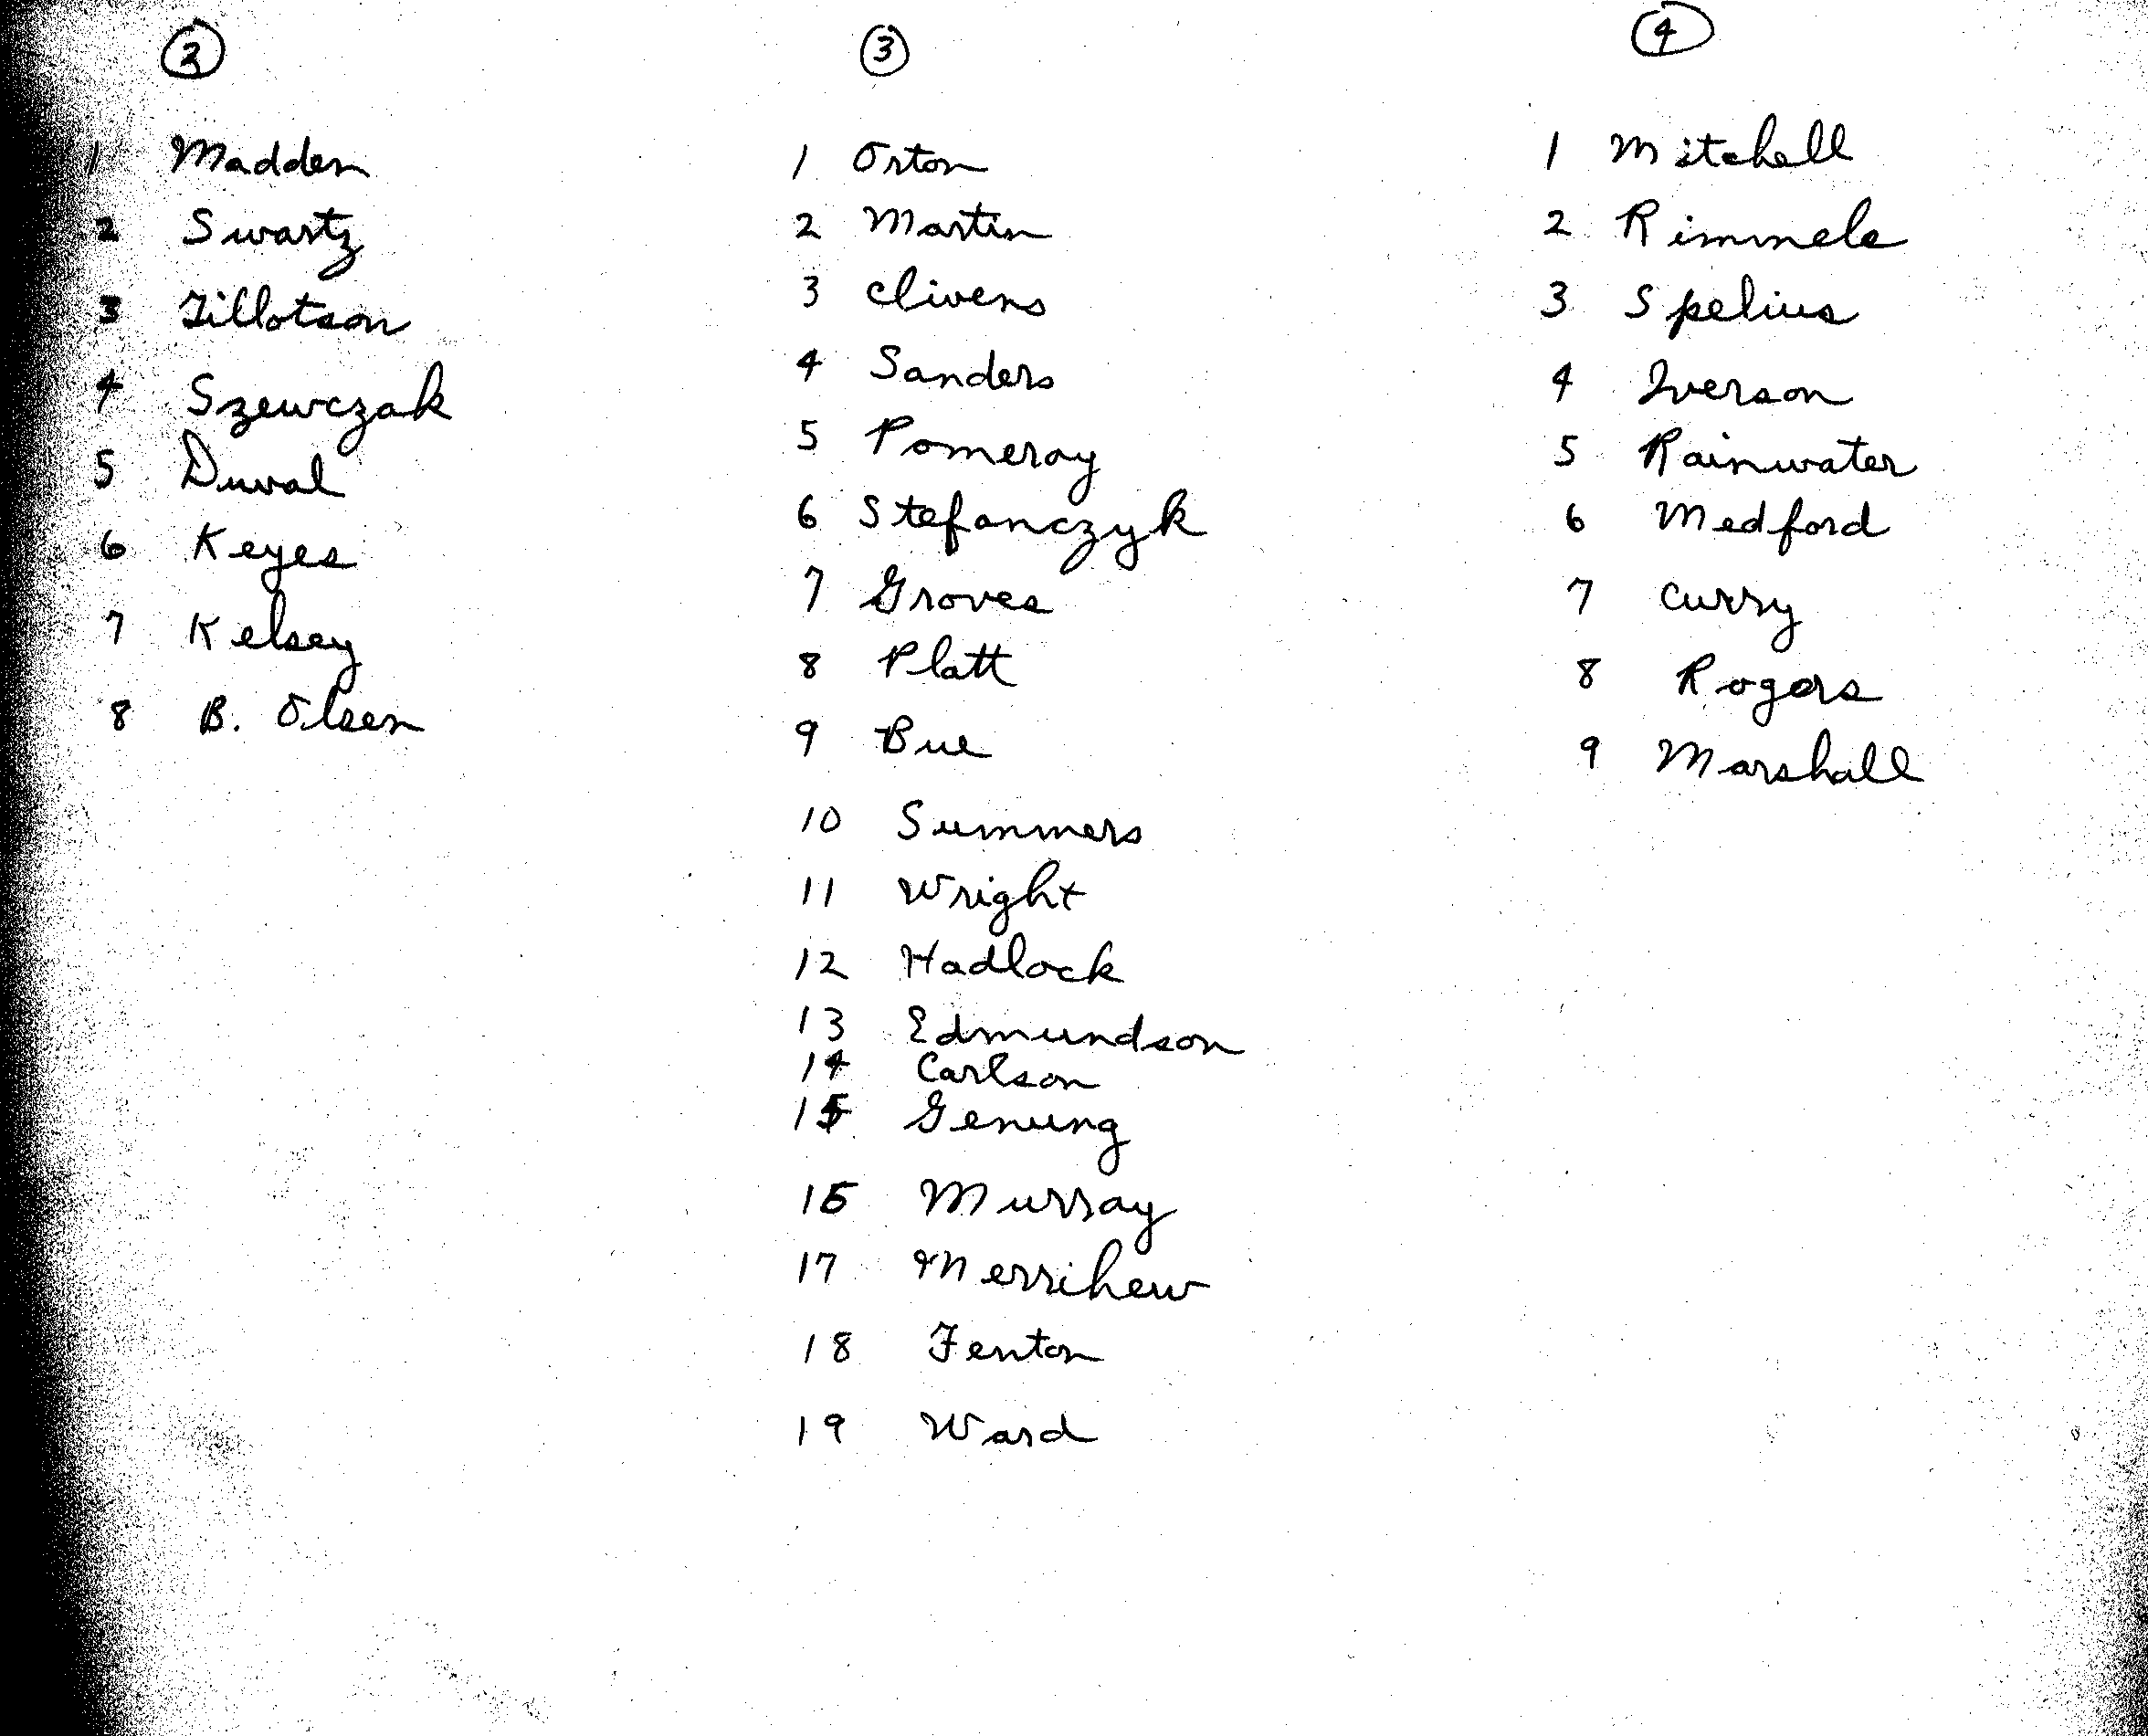 2
1 Madden
2 Swartz
3 Tillotson
4 Szewczak
5 Duval
6 Keyes
7 Kelsey
8 B. Olsen
3
1 Orton
2 Martin
3 Clivens
4 Sanders
5 Pomeray
6 Stefanczyk
7 Groves
8 Platt
9 Bue
10 Summers
11 Wright
12 Hadlock
13 Edmundson
14 Carlson
15 Genung
16 Murray
17 Merrihew
18 Fenton
19 Ward
4
1 Mitchell
2 Rimmele
3 Spelius
4 Iverson
5 Rainwater
6 Medford
7 Curry
8 Rogers
9 Marshall